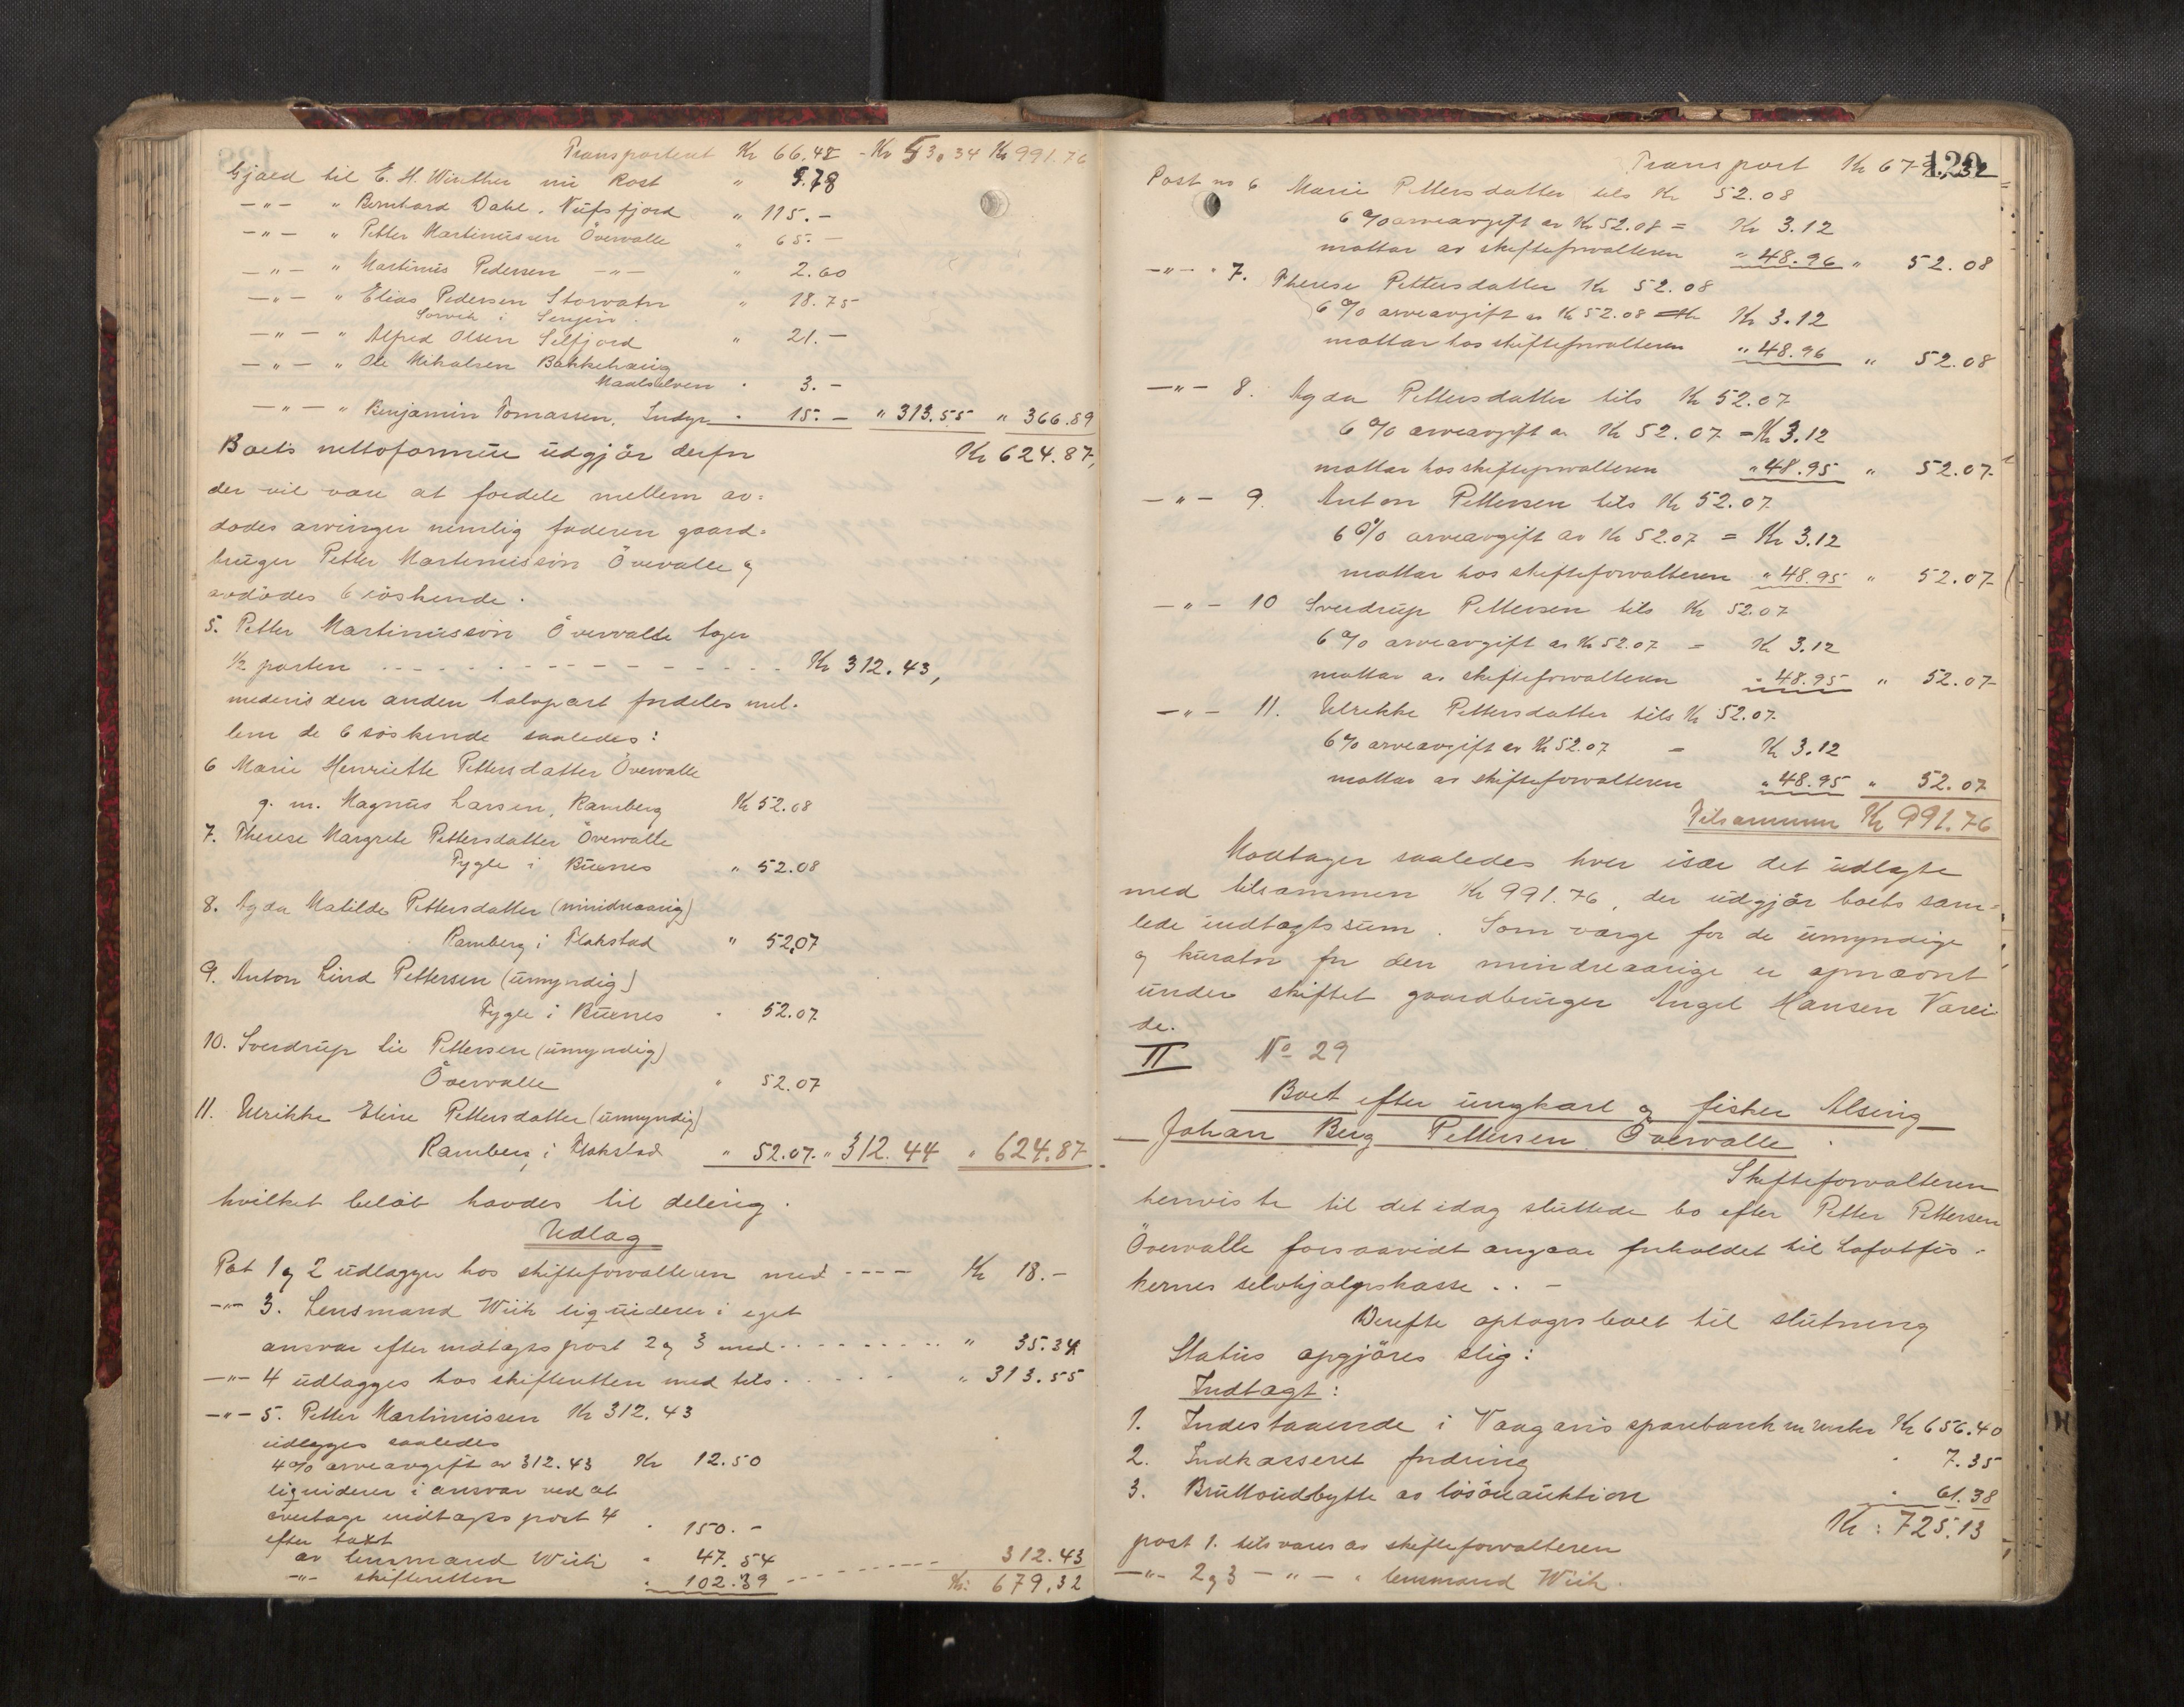 Transporteret Kr 66.42 - Kr 53.34 Kr 991.76
Gjæld til E. H. Winther nu Rost " 5.78
-"- " Bernhard Dahl, Nufsfjord " 115.-
-"- " Petter Martinussen Övervalle " 65.-
-"- " Martinus Pedersen -"- " 2.60
-"- " Elias Pedersen Storvatn " 18.75
Sorvik i Senjen.
-"- " Alfred Olsen Selfjord " 21.-
-"- " Ole Mikalsen Bakkehaug
Maalselven " 3.-
-"- " Benjamin Tomassen, Indyr " 15.- " 313.55 " 366.89
Boets nettoformue udgjör derfor Kr 624.87,
der vil være at fordele mellem av=
dødes arvinger nemlig faderen gaard=
bruger Petter Martinussön Övervalle og
avdödes 6 söskende.
5. Petter Martinussön Övervalle tager
1/2 parten - - - - - - - - - - Kr 312.43,
medens den anden halvpart fordeles mel-
lem de 6 söskende saaledes:
6 Marie Henriette Pettersdatter Övervalle
g. m. Magnus Larsen, Ramberg Kr 52.08
7. Therese Margrete Pettersdatter Övervalle
Fygle i Buxnes " 52.08
8. Agda Matilde Pettersdatter (mindreaarig)
Ramberg i Flakstad " 52,07
9. Anton Lind Pettersen (umyndig)
Fygle i Buxnes " 52.07
10. Sverdrup Lie Pettersen (umyndig)
Övervalle " 52.07
11. Ulrikke Eline Pettersdatter (umyndig)
Ramberg i Flakstad " 52.07. " 312.44 " 624.87
hvilket belöb havdes til deling.
Udlæg
Post 1 og 2 udlægges hos skifteforvalteren med ---- Kr 18.-
-"- 3. Lensmand Wiik liquiderer i eget
ansvar efter indtægtspost 2 og 3 med - - - - " 35.34
-"- 4 udlægges hos skifteretten med tils. - - - - " 313.55
-"- 5. Petter Martinussen Kr 312.43
udlægges saaledes
4% arveavgift av 312.43 Kr 12.50
liquiderer i ansvar ved at
overtage indtægts post 4
efter takst " 150.-
av lensmand Wiik " 47.54 312.43
-"- skifteretten " 102.39 - - - - Kr: 679,32
129
Transport Kr 679.32
Post no 6 Marie Pettersdatter tils Kr 52.08
6% arveavgift av Kr 52.08 = Kr 3.12
mottar av skifteforvalteren " 48.96 " 52.08
-"- " 7. Therese Pettersdatter Kr 52.08
6% arveavgift av Kr 52.08 = Kr 3.12
mottar hos skifteforvalteren " 48.96 " 52.08
-"- 8. Agda Pettersdatter tils Kr 52.07
6% arveavgift av Kr 52.07 = Kr 3.12
mottar hos skifteforvalteren " 48.95 " 52.07
-"- 9. Anton Pettersen tils Kr 52.07
6% arveavgift av Kr 52.07 = Kr 3.12
mottar hos skifteforvalteren " 48.95 " 52.07
-"- 10 Sverdrup Pettersen tils Kr 52.07
6% arveavgift av Kr 52.07 = Kr 3.12
mottar av skifteforvalteren " 48.95 " 52.07
-"- 11. Ulrikke Pettersdatter tils Kr 52.07
6% arveavgift av Kr 52.07 = Kr 3.12
mottar av skifteforvalteren " 48.95 " 52.07
Tilsammen Kr 991.76
Modtager saaledes hver især det udlagte
med tilsammen Kr 991.76, der udgjör boets sam=
lede indtægtssum. Som værge for de umyndige
og kurator for den mindreaarige er opnævnt
under skiftet gaardbruger Angel Hansen Varei-
de.
II No 29
Boet efter ungkarl og fisker Alsing
Johan Berg Pettersen Övervalle.
Skifteforvalteren
henviste til det idag sluttede bo efter Petter Pettersen
Övervalle forsaavidt angaar forholdet til Lofotfis-
kernes selvhjælpskasse. . -
Derefter optages boet til slutning
Status opgjöres slig:
Indtægt:
1. Indestaaende i Vaagans sparebank m renter Kr 656.40
2. Indkasseret fordring " 7.35
3. Bruttoudbytte av lösöreauktion " 61.38
Kr: 725.13
post 1. tilsvares av skifteforvalteren
-"- 2 og 3 -"- " lensmand Wiik.